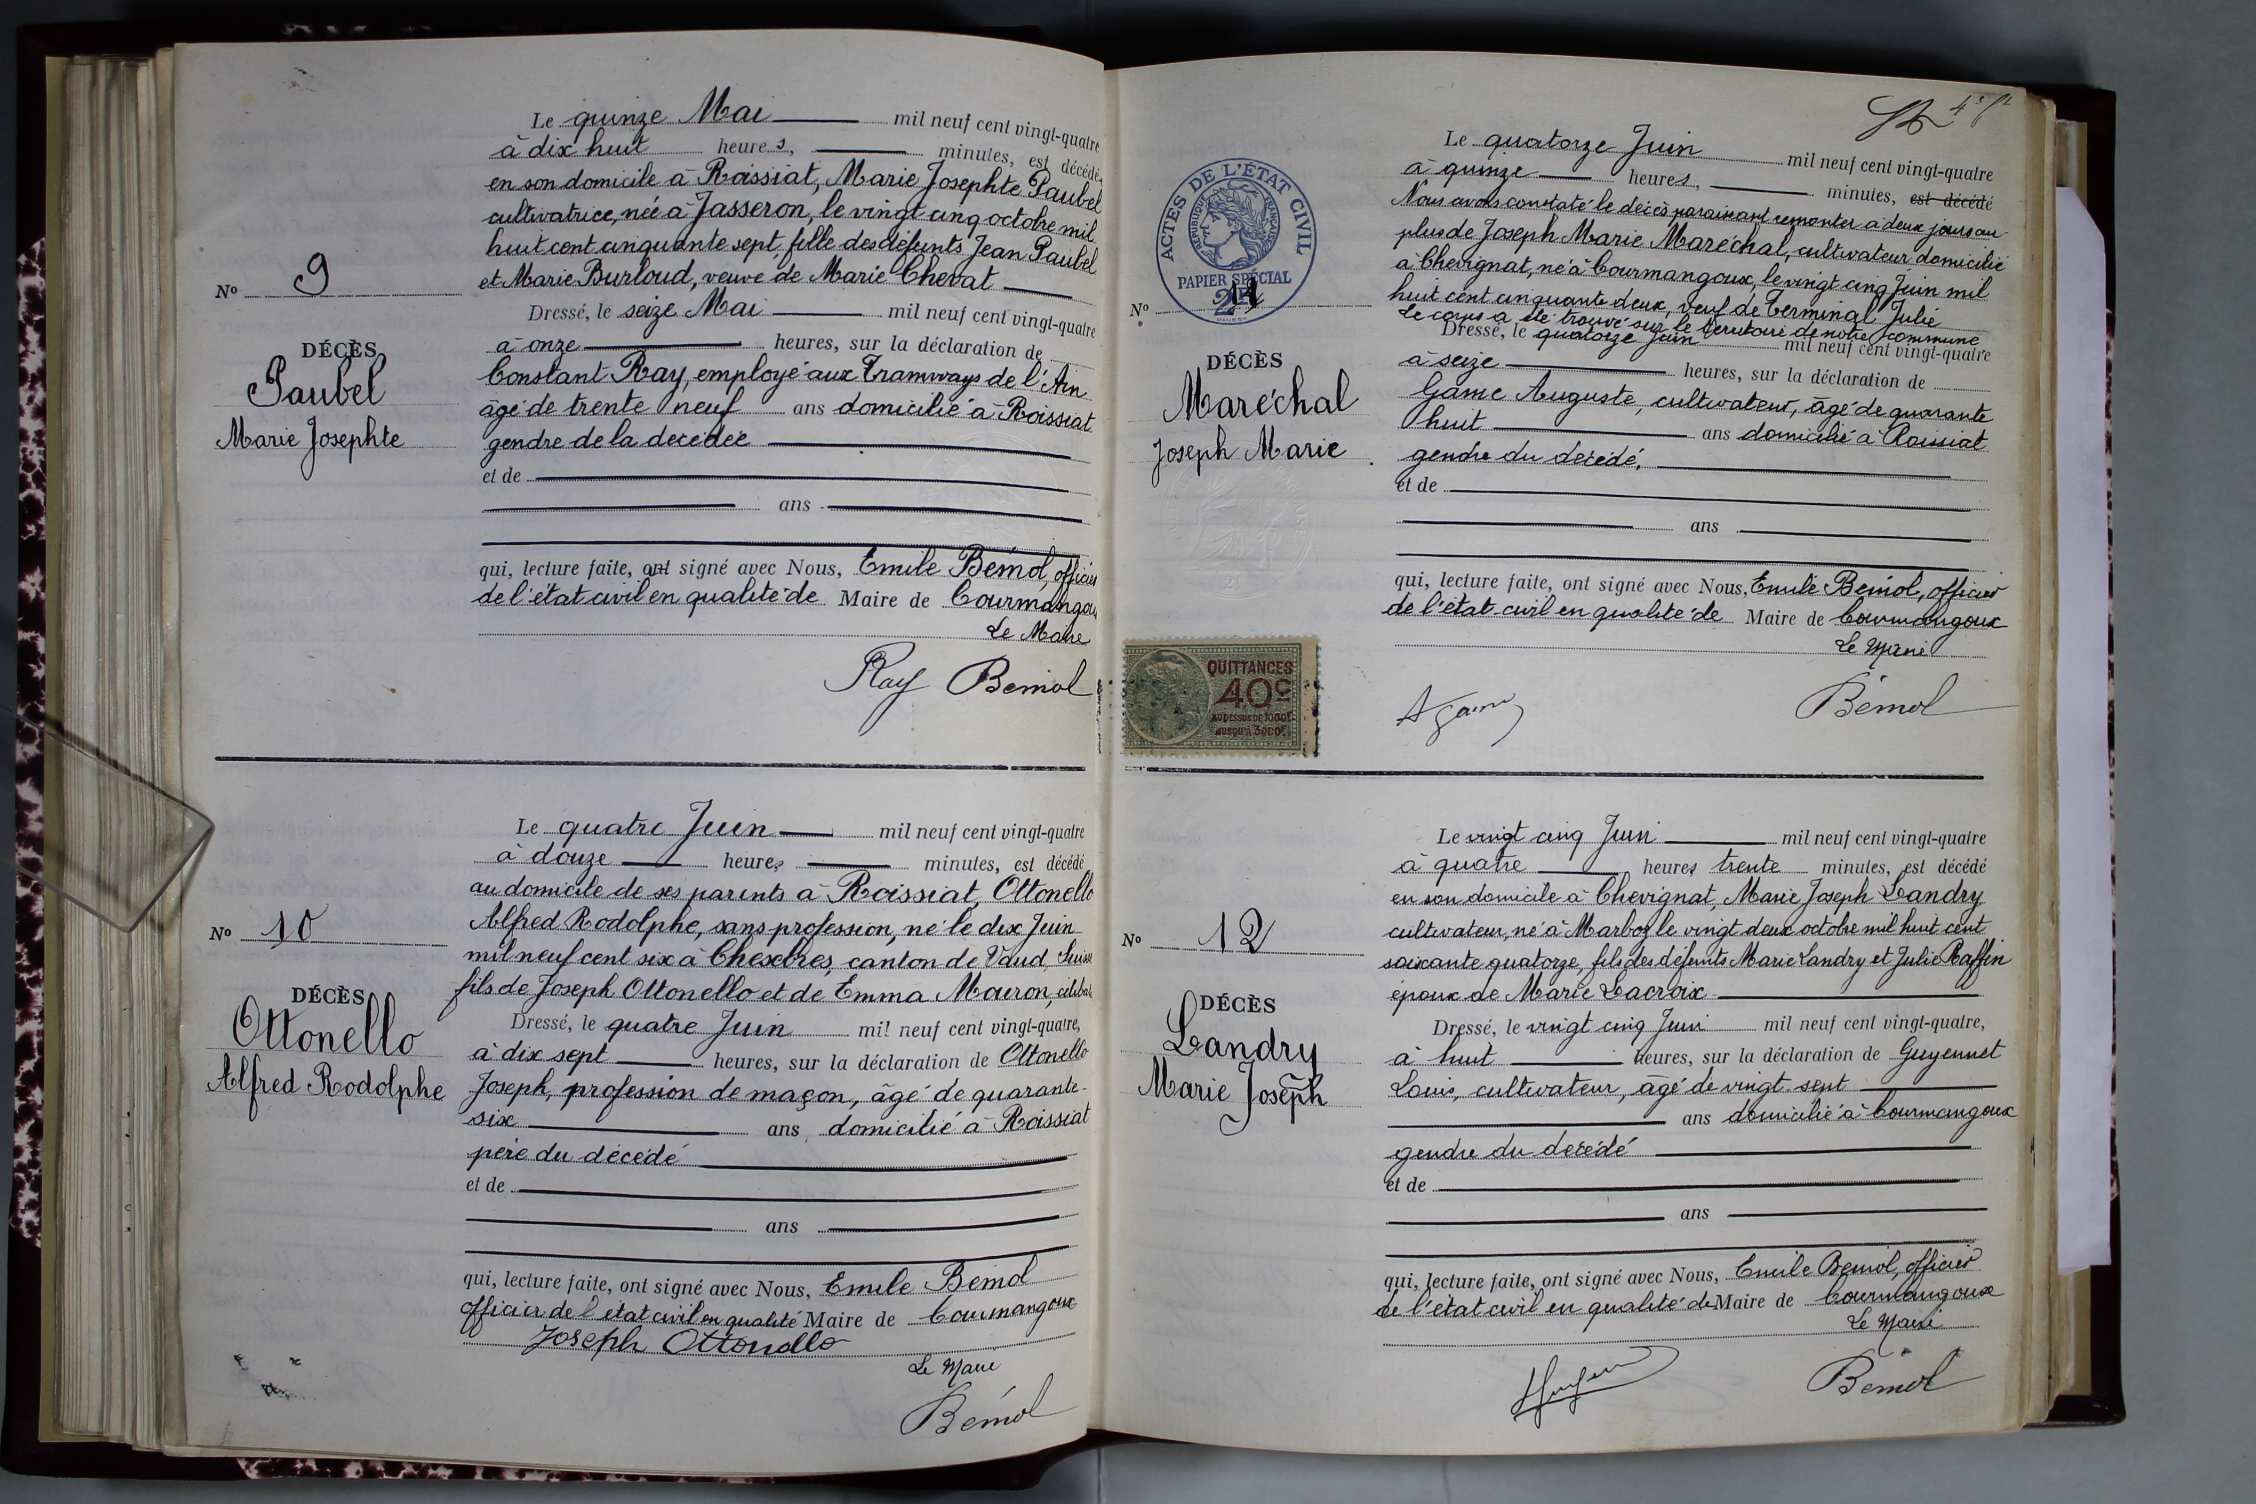 Le quinze Mai mil neuf cent vingt-quatre
à dix huit heures, minutes, est décédée
en son domicile à Roissiat, Marie Josephte Paubel
cultivatrice, née à Jasseron, le vingt cinq octobre mil
huit cent cinquante sept, fille des défunts Jean Paubel
et Marie Burloud, veuve de Marie Chevat
No 9
DÉCÈS
Paubel
Marie Josephte
Dressé, le seize Mai mil neuf cent vingt-quatre
à onze heures, sur la déclaration de
Constant Ray, employé aux Tramways de l'Ain
âgé de trente neuf ans domicilié à Roissiat
gendre de la décédée
et de
ans
qui, lecture faite, ont signé avec Nous, Emile Bémol, officier
de l'état civil en qualité de Maire de Courmangou
Le Maire
Ray Bémol
Le quatre Juin mil neuf cent vingt-quatre
à douze heures minutes, est décédé
au domicile de ses parents à Roissiat, Ottonello
Alfred Rodolphe, sans profession, né le dix Juin
mil neuf cent six à Chexbres, canton de Vaud, Suisse
fils de Joseph Ottonello et de Emma Mouron,
No 10
DÉCÈS
Ottonello
Alfred Rodolphe
Dressé, le quatre Juin mil neuf cent vingt-quatre,
à dix sept heures, sur la déclaration de Ottonello
Joseph, profession de maçon, âgé de quarante-
six ans, domicilié à Roissiat
père du décédé
et de
ans
qui, lecture faite, ont signé avec Nous, Emile Bémol
officier de l'état civil en qualité Maire de Courmangoux
Joseph Ottonello
Le Maire
Bémol
Le quatorze Juin mil neuf cent vingt-quatre
à quinze heures, minutes, est décédé
Nous avons constaté le décès paraissant remonter à deux jours au
plus de Joseph Marie Maréchal, cultivateur domicilié
à Chevignat, né à Courmangoux, le vingt cinq Juin mil
huit cent cinquante deux, veuf de Terminal Julie
Le corps a été trouvé sur le territoire de notre commune
ACTES DE L'ÉTAT CIVIL
RÉPUBLIQUE FRANÇAISE
PAPIER SPÉCIAL
No 11
DÉCÈS
Maréchal
Joseph Marie
Dressé, le quatorze Juin mil neuf cent vingt-quatre
à seize heures, sur la déclaration de
Game Auguste, cultivateur, âgé de quarante
huit ans domicilié à Roissiat
gendre du décédé.
et de
ans
qui, lecture faite, ont signé avec Nous, Emile Bémol, officier
de l'état civil en qualité de Maire de Courmangoux
Le Maire
QUITTANCES
40c
AU DESSUS DE 1000F
JUSQU'À 3000F
Bémol
Le vingt cinq Juin mil neuf cent vingt-quatre
à quatre heures trente minutes, est décédé
en son domicile à Chevignat, Marie Joseph Landry
cultivateur, né à Marboz le vingt deux octobre mil huit cent
soixante quatorze, fils des défunts Marie Landry et Julie Raffin
époux de Marie Lacroix
No 12
DÉCÈS
Landry
Marie Joseph
Dressé, le vingt cinq Juin mil neuf cent vingt-quatre,
à huit heures, sur la déclaration de Guyennet
Louis, cultivateur, âgé de vingt sept
ans domicilié à Courmangoux
gendre du décédé
et de
ans
qui, lecture faite, ont signé avec Nous, Emile Bémol, officier
de l'état civil en qualité de Maire de Courmangoux
Le Maire
Bémol